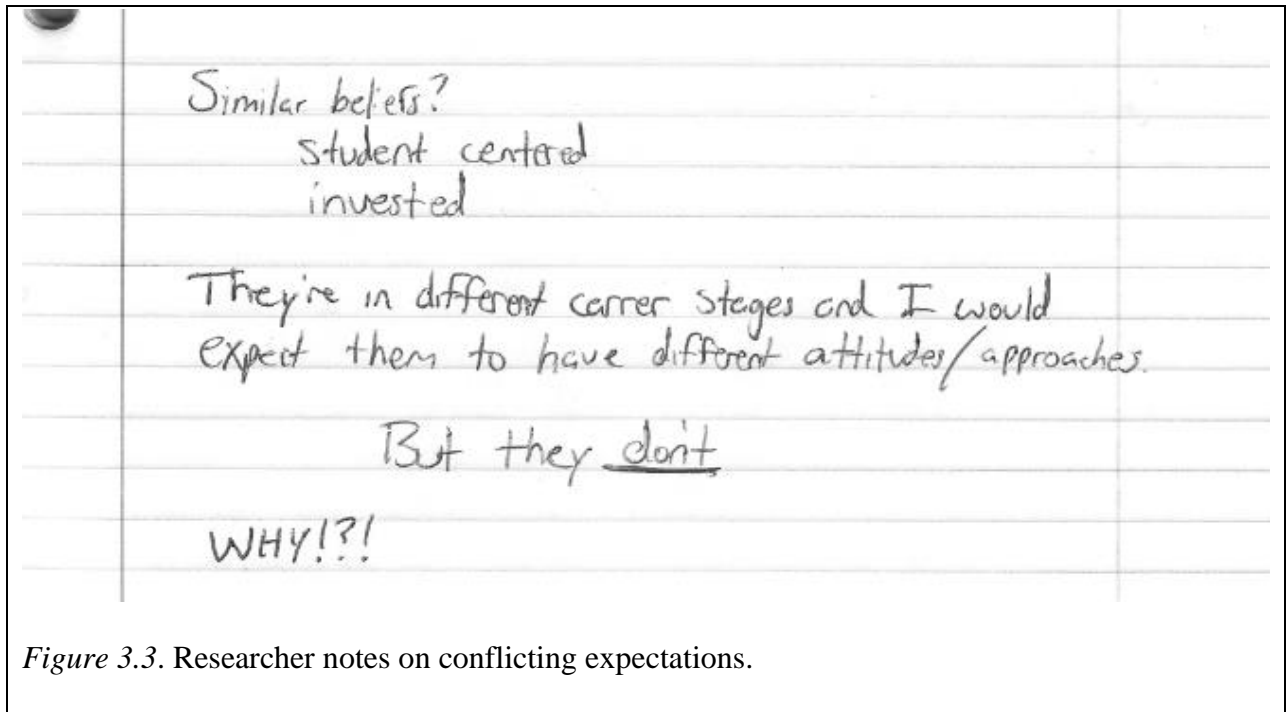 Similar beliefs?
student centered
invested
They're in different carrer steges and I would
expect them to have different attitudes/approaches.
But they don't
WHY!?!
Figure 3.3. Researcher notes on conflicting expectations.